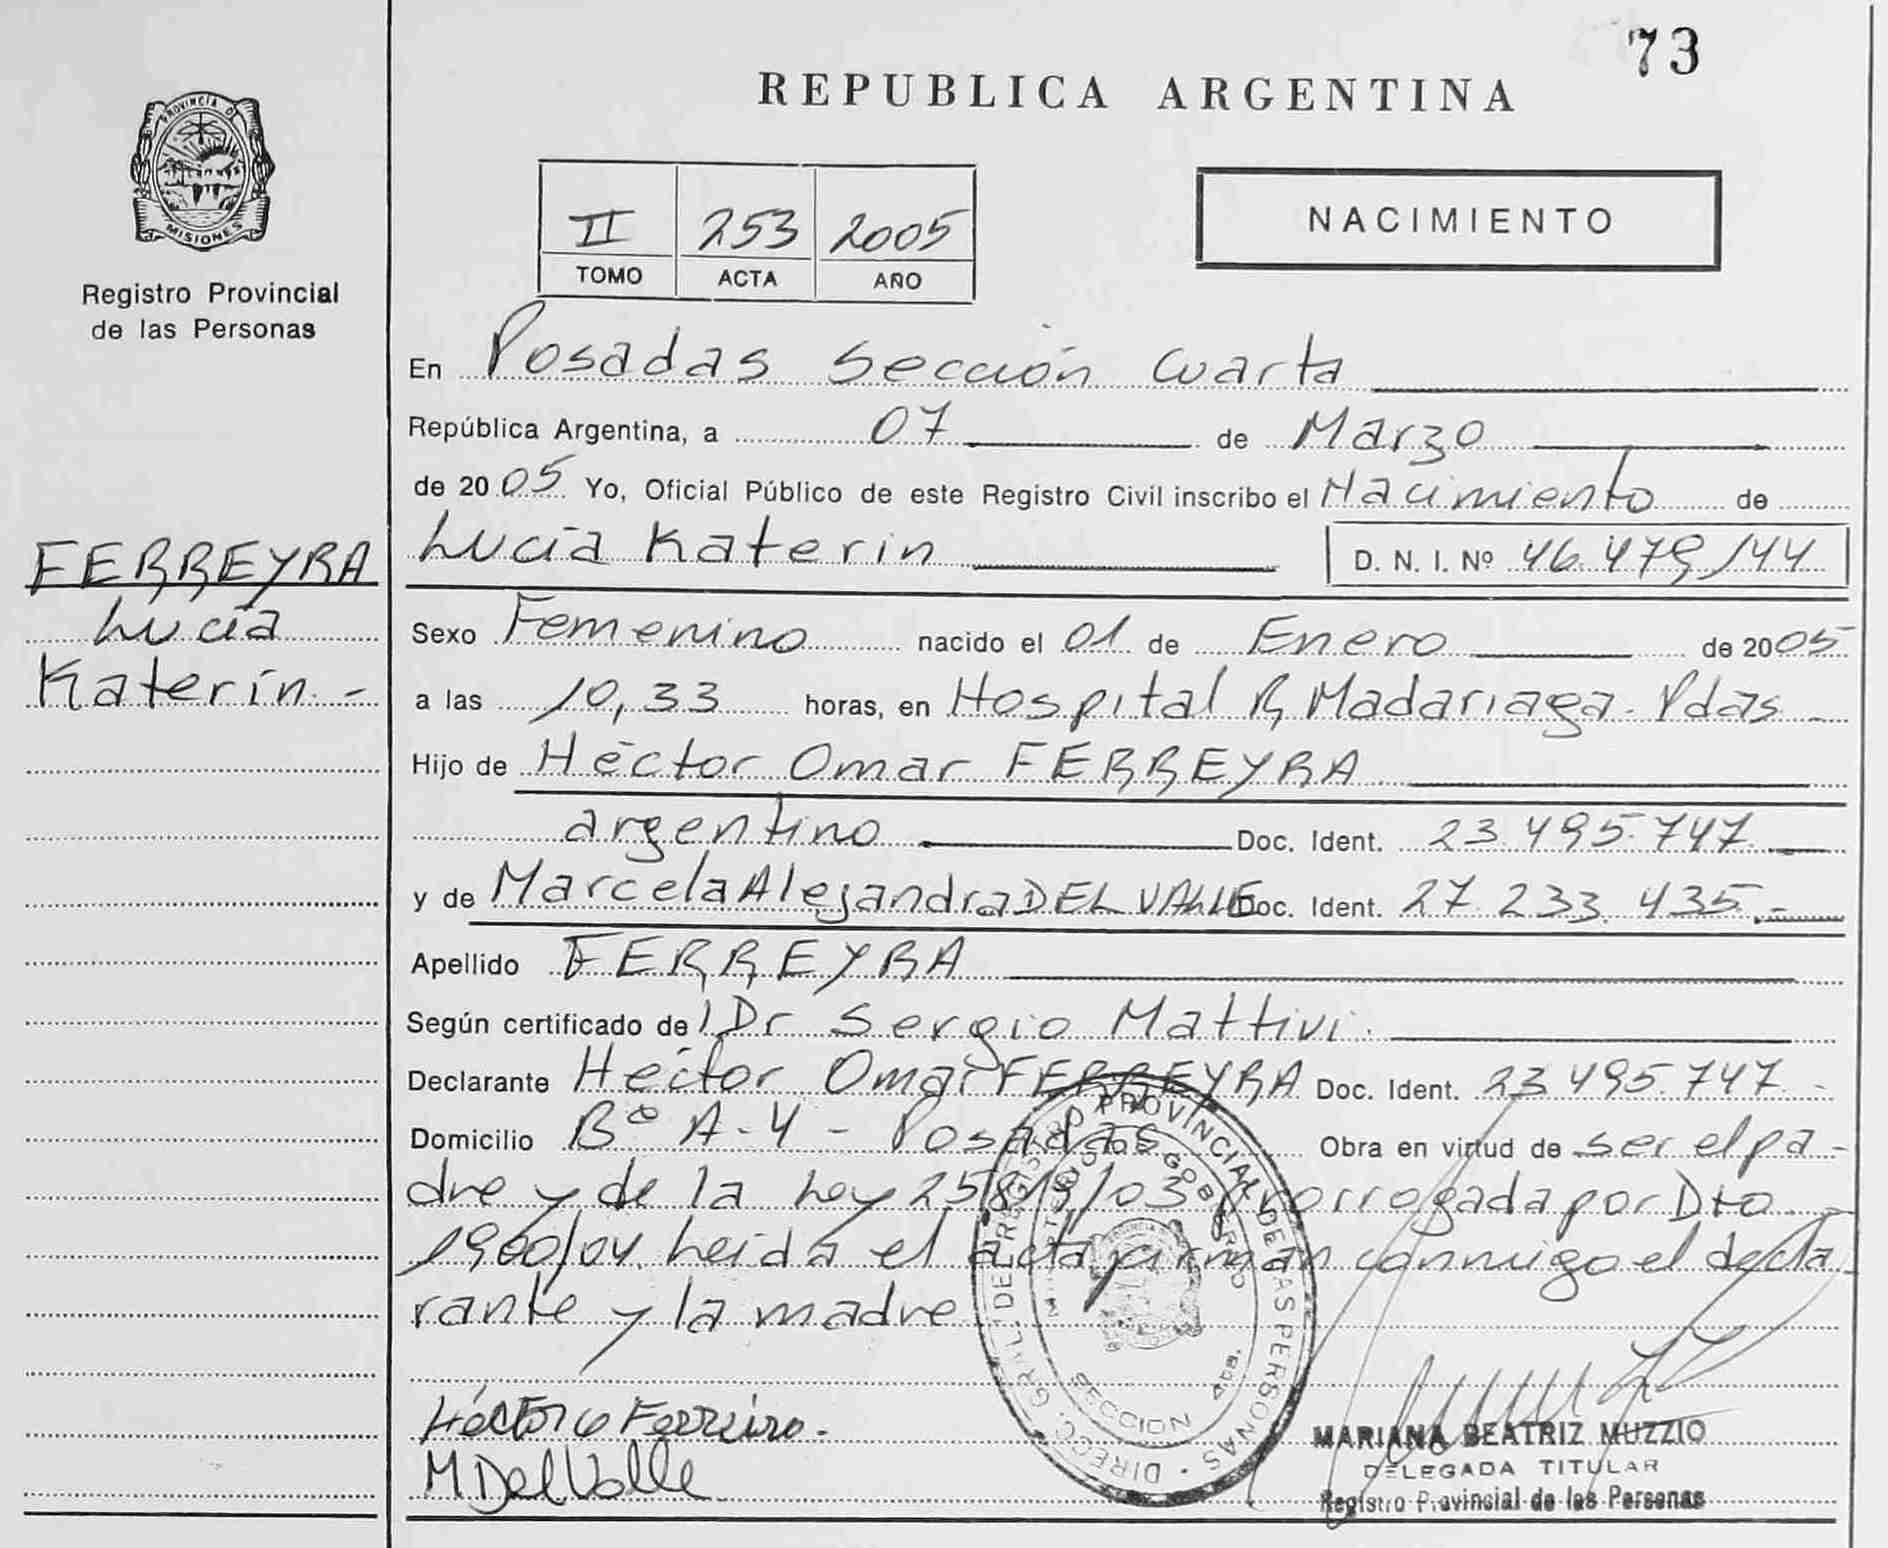 73
REPUBLICA ARGENTINA
PROVINCIA D
MISIONES
Registro Provincial
de las Personas
II 253 2005
TOMO ACTA AÑO
NACIMIENTO
En Posadas Sección Cuarta
República Argentina, a 07 de Marzo
de 2005 Yo, Oficial Público de este Registro Civil inscribo el Nacimiento de
Lucía Katerin D. N. I. Nº
FERREYRA
Lucía
Katerin.-
Sexo Femenino nacido el 01 de Enero de 2005
a las 10,33 horas, en Hospital R Madariaga. Pdas
Hijo de Héctor Omar FERREYRA
argentino Doc. Ident. 23.495.747
y de Marcela Alejandra DEL VALLE Doc. Ident. 27.233.435.-
Apellido FERREYRA
Según certificado de Dr Sergio Mattivi.
Declarante Héctor Omar FERREYRA Doc. Ident. 23.495.747.-
Domicilio Bº A-4 - Posadas Obra en virtud de ser el pa-
dre y de la Ley 25819/03 prorrogada por Dto
1900/04. Leída el acta firman conmigo el decla-
rante y la madre
DIREC. GRAL. DE REGISTRO PROVINCIAL DE LAS PERSONAS
MINISTERIO DE GOBIERNO
SECCION
M Del Valle
MARIANA BEATRIZ MUZZIO
DELEGADA TITULAR
Registro Provincial de las Personas